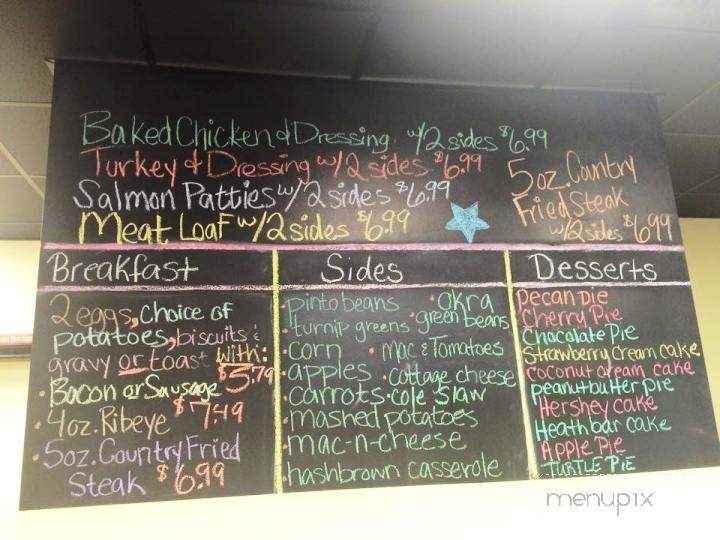 Baked Chicken & Dressing w/2 sides $6.99
Turkey & Dressing w/2 sides $6.99
Salmon Patties w/2 sides $6.99
Meat Loaf w/2 sides $6.99
5oz. Country
Fried Steak
w/2 sides $6.99
Breakfast
2 eggs, choice of
potatoes, biscuits &
gravy or toast with:
• Bacon or Sausage $5.79
• 4oz. Ribeye $7.49
• 5oz. Country Fried
Steak $6.99
Sides
• pinto beans • okra
• turnip greens • green beans
• corn • mac & Tomatoes
• apples • cottage cheese
• carrots • cole slaw
• mashed potatoes
• mac-n-cheese
• hashbrown casserole
Desserts
pecan pie
Cherry Pie
Chocolate Pie
Strawberry cream cake
coconut cream cake
peanut butter pie
Hershey cake
Heath bar cake
Apple Pie
TURTLE PIE
menupix